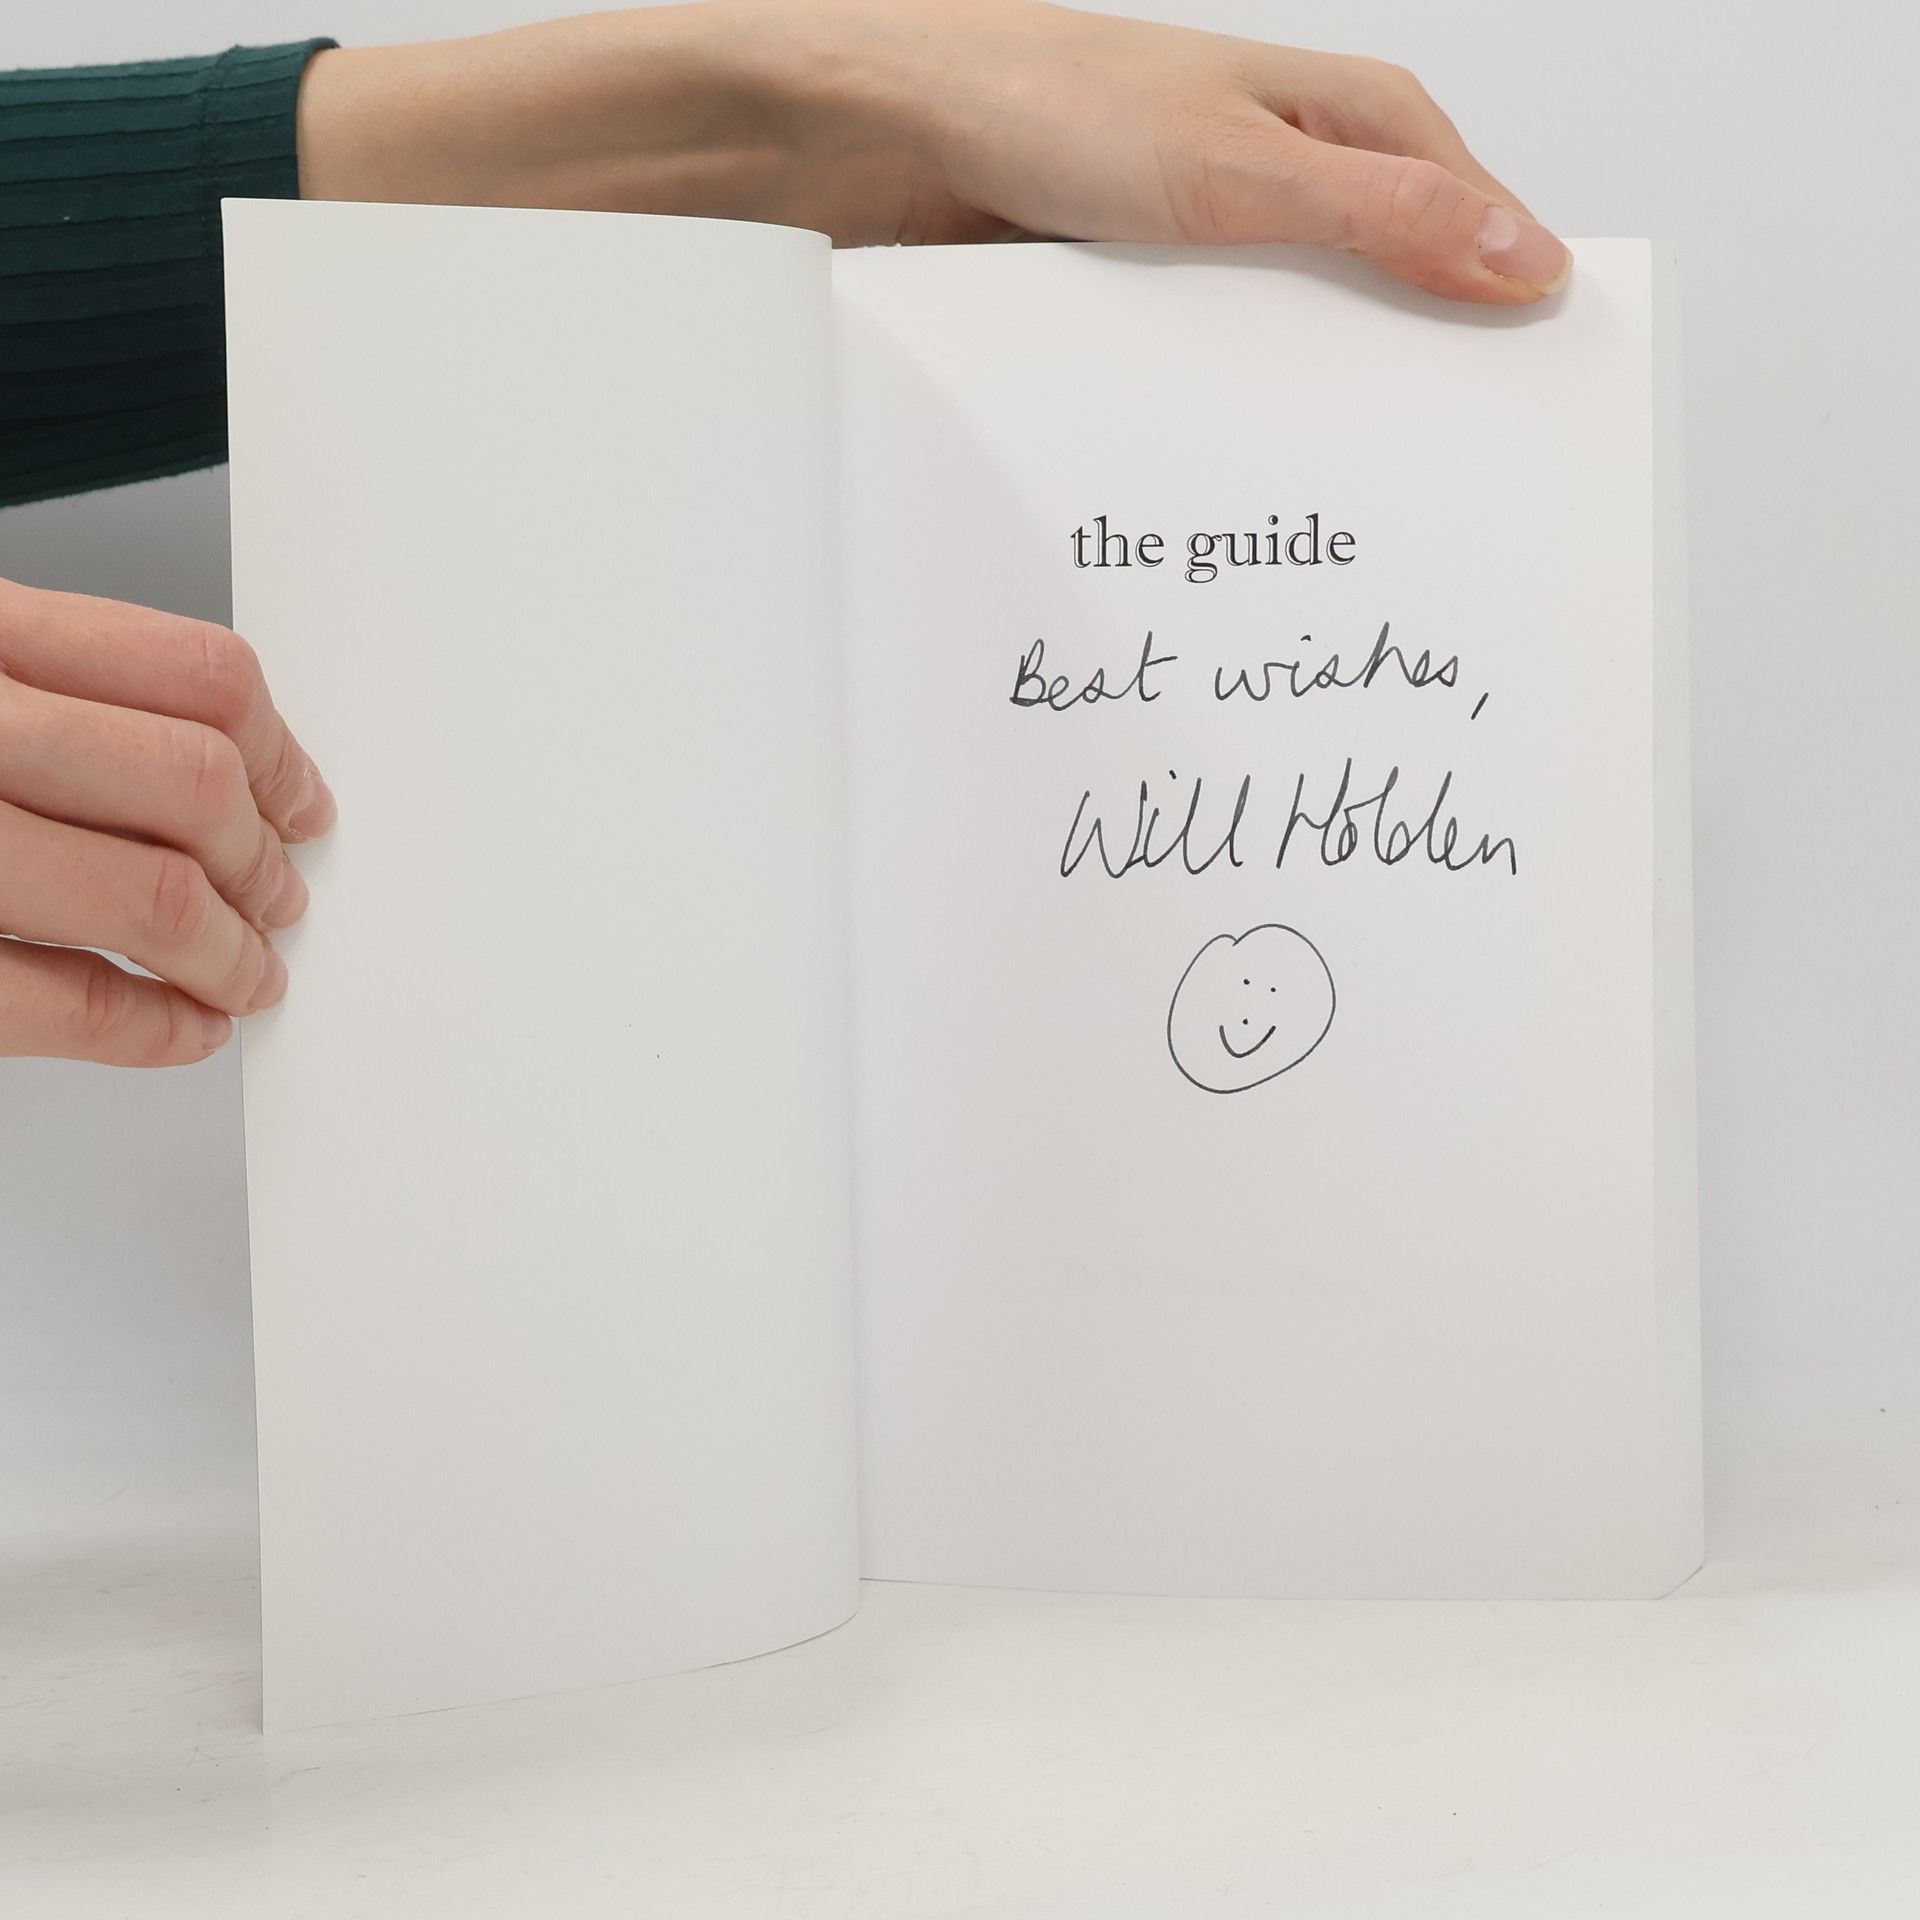 the guide
Best wishes,
Will Holden